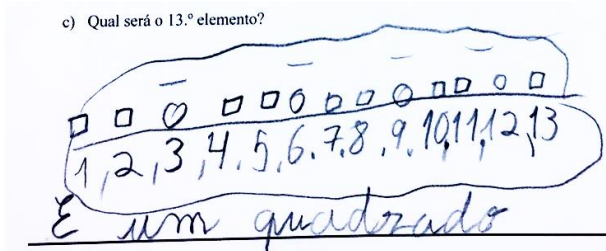 c) Qual será o 13.º elemento?
1, 2, 3, 4, 5, 6, 7, 8, 9, 10, 11, 12, 13
É um quadrado